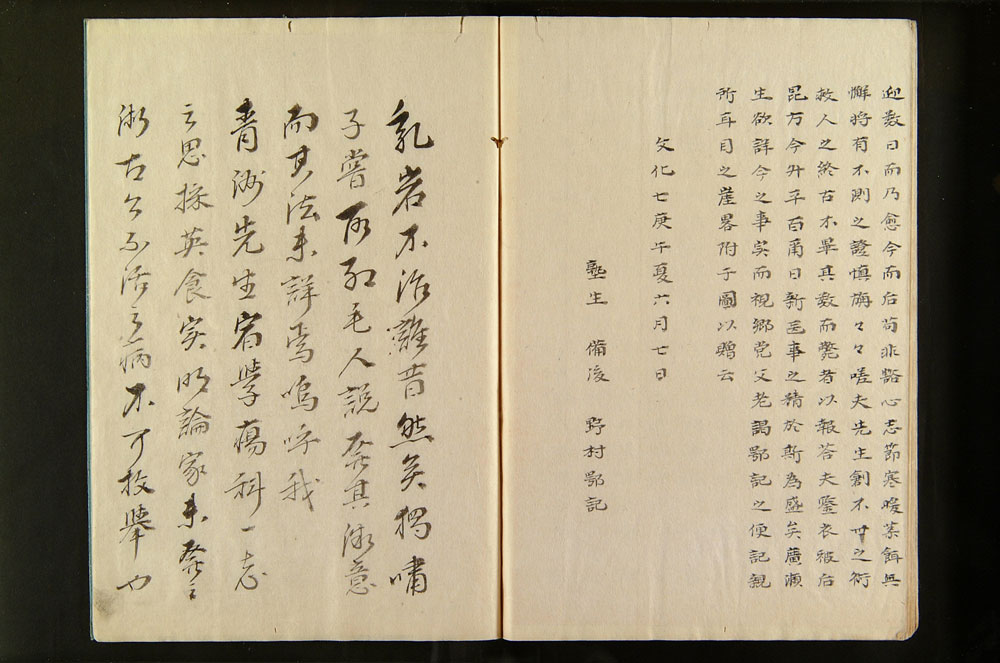 迎数日而乃愈今而后苟非豁心志節寒暖菜餌無
懈将有不測之證慎悔々々嗟夫先生創不世之術
救人之終古不畢其数而斃者以報答夫鑒衣被后
昆方今升平百爾日新医事之精於斯為盛矣廣瀬
生欲詳今之事実而視郷党父老謁鄂記之便記親
所耳目之崖畧附于圖以贈云
文化七庚午夏六月七日
塾生 備後 野村鄂記
乳岩不治難昔然矣獨嘯
子嘗 紅毛人説 其 意
而其法未詳焉嗚呼我
青洲先生宿學瘍科一志
之思採英食実明論家未發之
術古今不治之病不可枚舉也